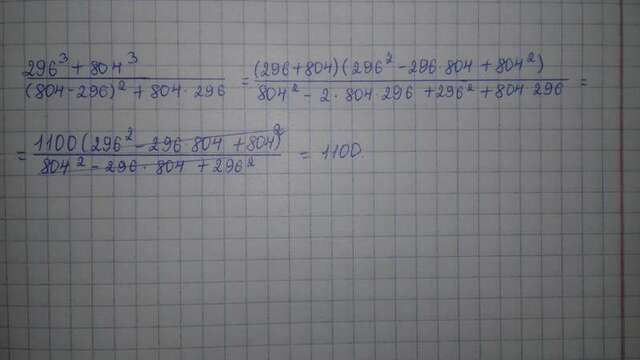 296³ + 804³ / (804-296)² + 804 · 296 = (296+804)(296² - 296·804 + 804²) / 804² - 2 · 804 · 296 + 296² + 804 · 296 =
= 1100(296² - 296·804 + 804²) / 804² - 296 · 804 + 296² = 1100.